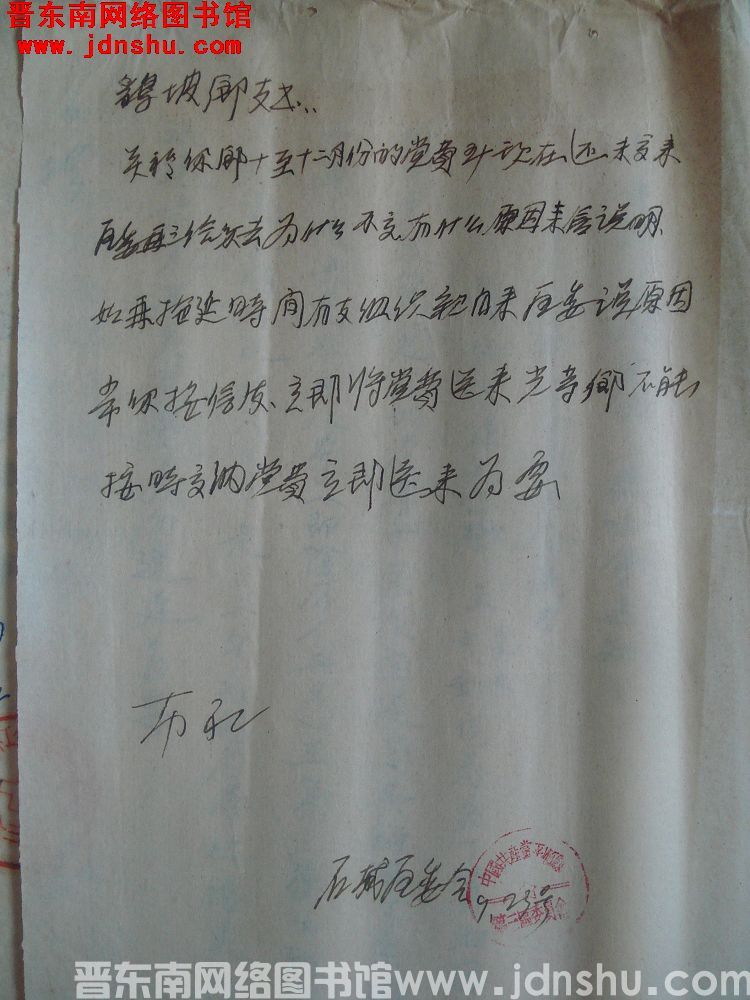 晋东南网络图书馆
www.jdnshu.com
坡鄉支书:
关於你鄉十至十二月份的党费到现在还未交来
区委再三给你去为什么不交有什么原因来信说明
如再拖延時间有支组织亲自来区委说原因
希你接信后立即将党费送来 鄉不能
按時交纳党费立即送来为要
布礼
石 区委会 9.23号
中国共产党平 第二区委员会
晋东南网络图书馆www.jdnshu.com